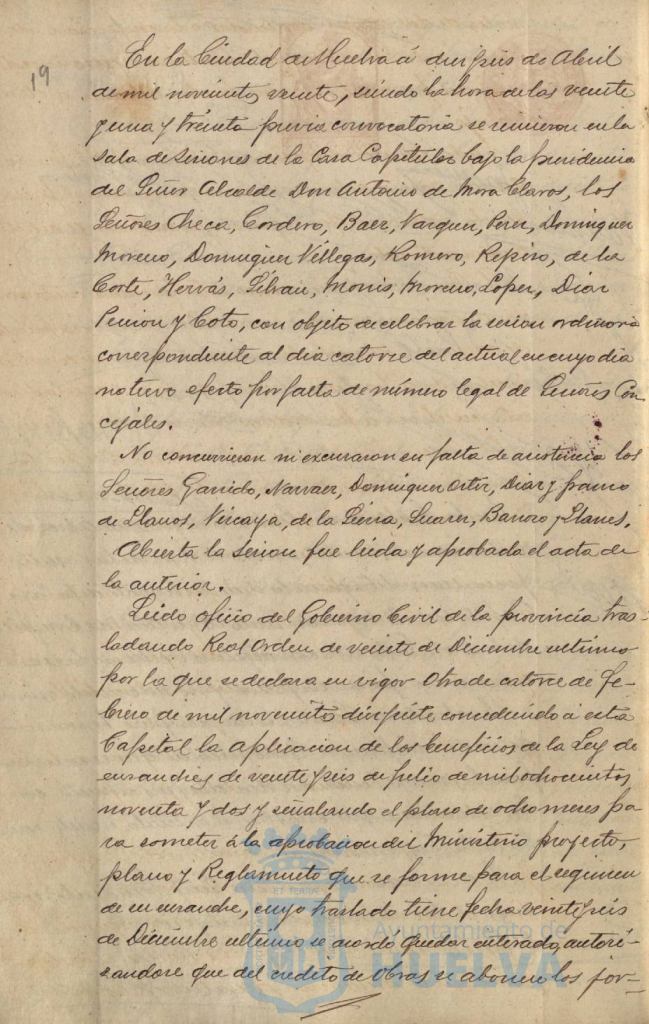 19
En la Ciudad de Huelva á dieciseis de Abril
de mil novecientos veinte, siendo la hora de las veinte
y una y treinta previa convocatoria se reunieron en la
Sala de Sesiones de la Casa Capitular bajo la presidencia
del Señor Alcalde Don Antonio de Mora Claros, los
Señores Checa, Cordero, Baez, Vazquez, Perez, Dominguez
Moreno, Dominguez Villegas, Romero, Repiso, de la
Corte, Hervás, Silvan, Monis, Moreno, Lopez, Diaz
Pinzon y Coto, con objeto de celebrar la sesion ordinaria
correspondiente al dia catorce del actual en cuyo dia
no tuvo efecto por falta de número legal de Señores Con-
cejales.
No concurrieron ni excusaron su falta de asistencia los
Señores Garrido, Narvaez, Dominguez Ortiz, Diaz y Franco
de Llanos, Vizcaya, de la Sierra, Suarez, Barroso y Llanes.
Abierta la sesion fue leida y aprobada el acta de
la anterior.
Leido oficio del Gobierno Civil de la provincia tras-
ladando Real Orden de veinte de Diciembre ultimo
por la que se declara en vigor otra de catorce de Fe-
brero de mil novecientos diecisiete concediendo á esta
Capital la aplicacion de los beneficios de la Ley de
ensanches de veinte y seis de Julio de mil ochocientos
noventa y dos y señalando el plazo de ocho meses pa-
ra someter á la aprobacion del Ministerio proyecto,
plano y Reglamento que se forme para el regimen
de su ensanche, cuyo traslado tiene fecha veinte y seis
de Diciembre ultimo se acordó quedar enterado, autori-
zandose que del credito de Obras se abonen los jor-
ET TERRAE
Ayuntamiento de
HUELVA